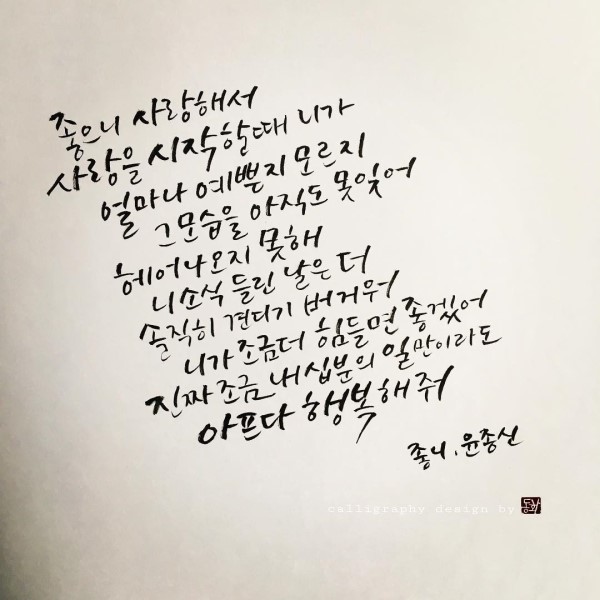 좋으니 사랑해서
사랑을 시작할때 니가
얼마나 예쁜지 모르지
그모습을 아직도 못잊어
헤어나오지 못해
니소식 들린 날은 더
솔직히 견디기 버거워
니가 조금더 힘들면 좋겠어
진짜 조금 내 십분의 일만이라도
아프다 행복해줘
좋니, 윤종신
calligraphy design by 동화